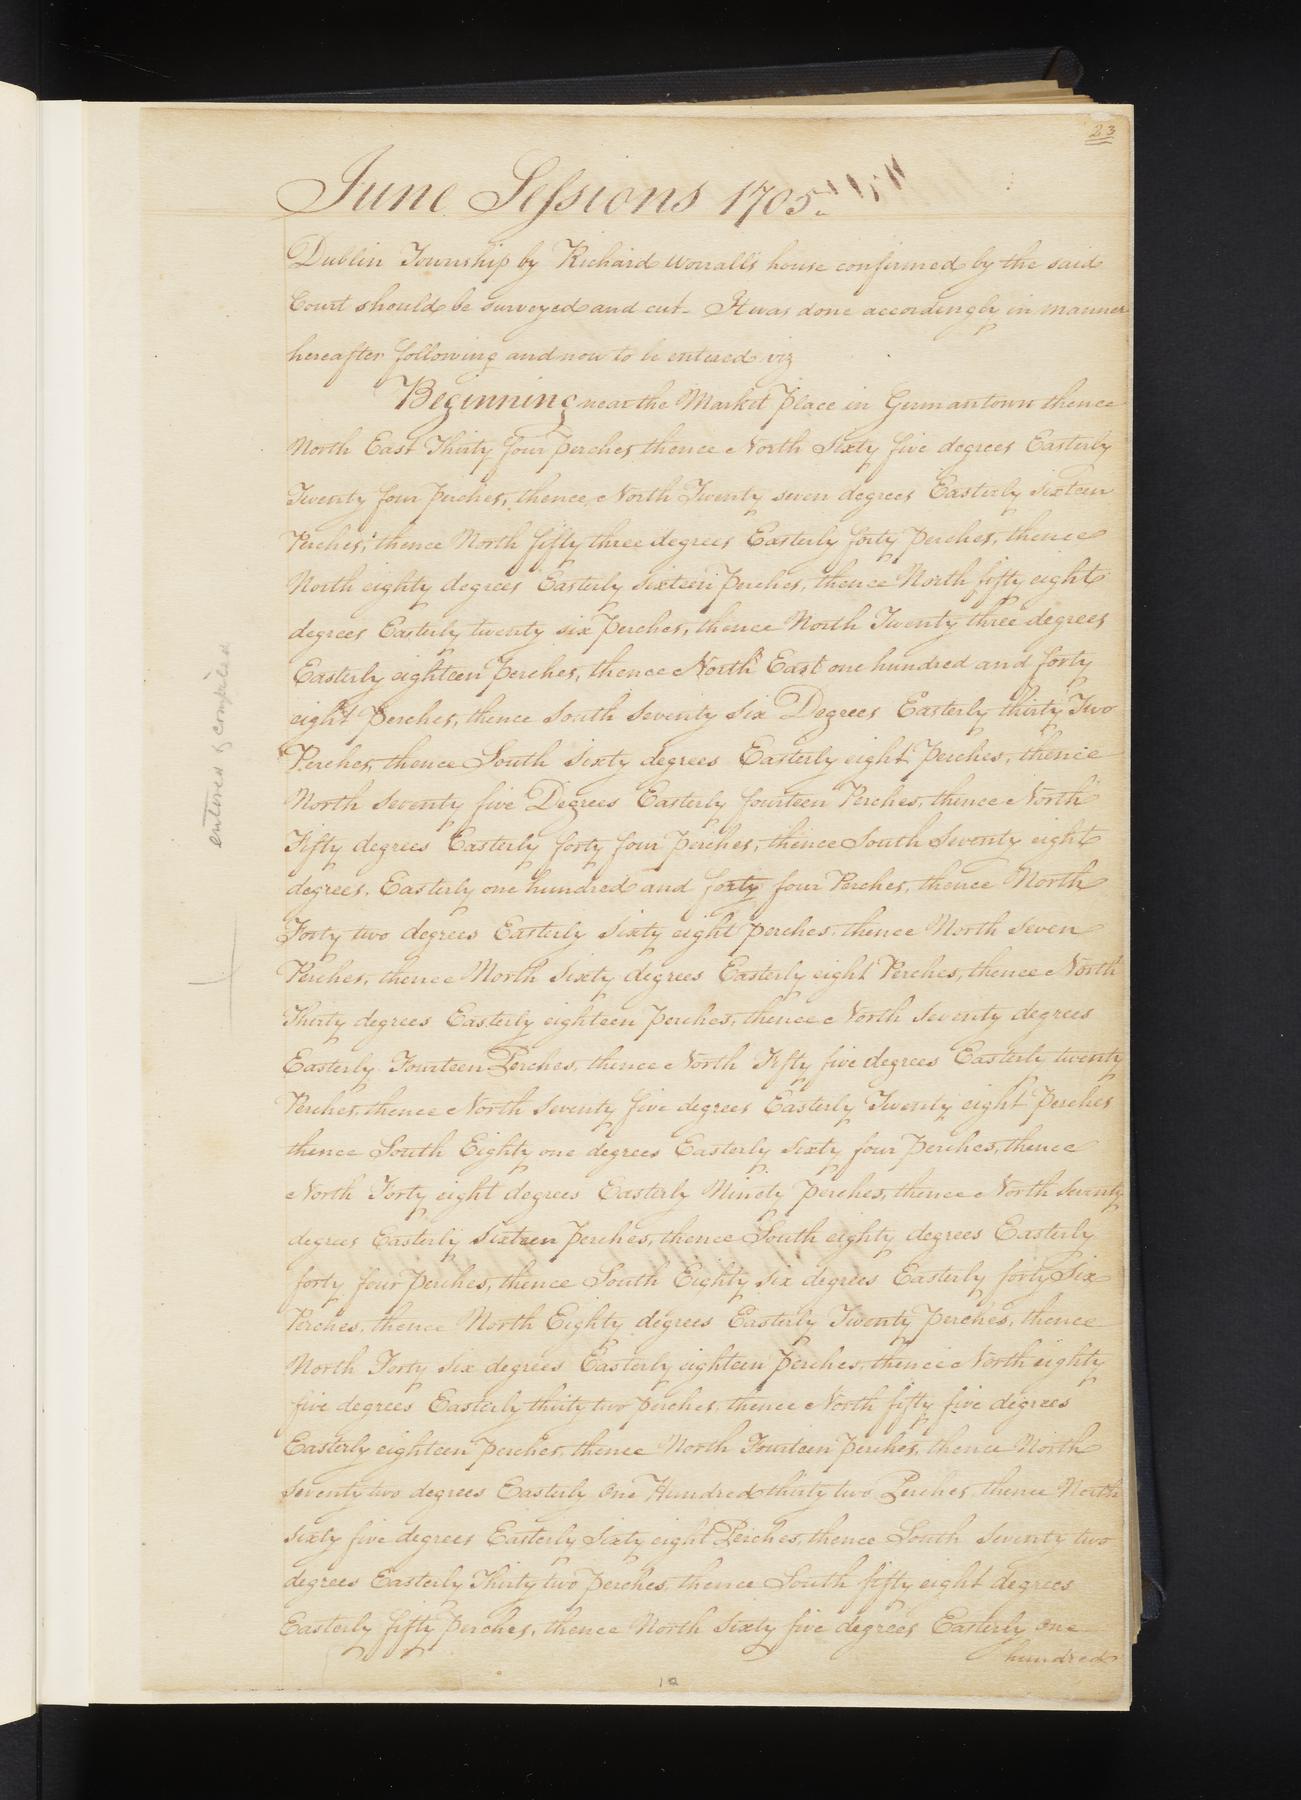 23
June Sessions 1705.
Dublin Township by Richard Worrall's house confirmed by the said
Court should be surveyed and cut - It was done accordingly in manner
hereafter following and now to be entered viz
Beginning near the Market Place in Germantown thence
North East Thirty four perches thence North Sixty five degrees Easterly
Twenty four perches, thence North Twenty seven degrees Easterly sixteen
Perches, thence North fifty three degrees Easterly forty perches, thence
North eighty degrees Easterly sixteen perches, thence North fifty eight
degrees Easterly twenty six perches, thence North Twenty three degrees
Easterly eighteen perches, thence North East one hundred and forty
eight perches, thence South Seventy Six Degrees Easterly thirty Two
Perches, thence South Sixty degrees Easterly eight perches, thence
North Seventy five Degrees Easterly fourteen Perches, thence North
Fifty degrees Easterly forty four perches, thence South Seventy eight
degrees. Easterly one hundred and forty four Perches, thence North
Forty two degrees Easterly Sixty eight perches, thence North Seven
Perches, thence North Sixty degrees Easterly eight Perches, thence North
Thirty degrees Easterly eighteen perches, thence North Seventy degrees
Easterly Fourteen Perches, thence North Fifty five degrees Easterly twenty
Perches, thence North Seventy five degrees Easterly Twenty eight perches
thence South Eighty one degrees Easterly sixty four perches, thence
North Forty eight degrees Easterly Ninety perches, thence North Seventy
degrees Easterly Sixteen perches, thence South eighty degrees Easterly
forty four perches, thence South Eighty Six degrees Easterly forty Six
Perches, thence North Eighty degrees Easterly Twenty perches, thence
North Forty Six degrees Easterly eighteen perches, thence North eighty
five degrees Easterly thirty two perches, thence North fifty five degrees
Easterly eighteen perches, thence North Fourteen perches, thence North
Seventy two degrees Easterly One Hundred thirty two Perches thence North
Sixty five degrees Easterly Sixty eight Perches, thence South Seventy two
degrees Easterly Thirty two perches, thence South fifty eight degrees
Easterly fifty perches, thence North Sixty five degrees Easterly One
hundred
entered & compiled